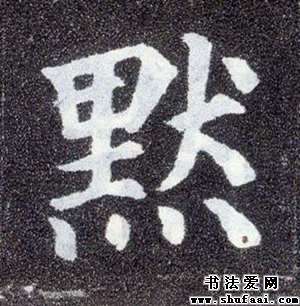 默
书法爱网
www.shufaai.com